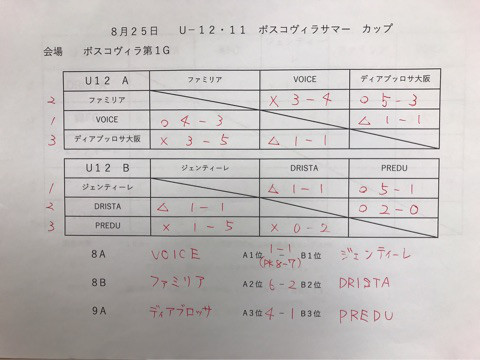 8月25日 U-12・11 ボスコヴィラサマー カップ
会場 ボスコヴィラ第1G
U12 A ファミリア VOICE ディアブッロサ大阪
2 ファミリア × 3-4 ○ 5-3
1 VOICE ○ 4-3 △ 1-1
3 ディアブッロサ大阪 × 3-5 △ 1-1
U12 B ジェンティーレ DRISTA PREDU
1 ジェンティーレ △ 1-1 ○ 5-1
2 DRISTA △ 1-1 ○ 2-0
3 PREDU × 1-5 × 0-2
8A VOICE A1位 1-1 (PK8-7) B1位 ジェンティーレ
8B ファミリア A2位 6-2 B2位 DRISTA
9A ディアブロッサ A3位 4-1 B3位 PREDU